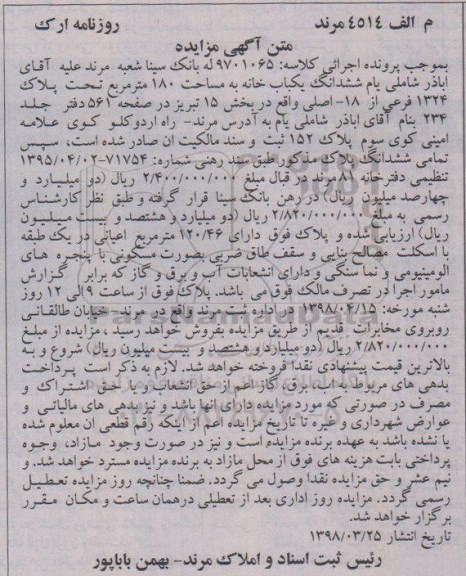 م الف ٤٥١٤ مرند روزنامه ارک
متن آگهی مزایده
بموجب پرونده اجرائی کلاسه: ۹۷۰۱۰۶۵ له بانک سینا شعبه مرند علیه آقای
اباذر شاملی یام ششدانگ یکباب خانه به مساحت ۱۸۰ مترمربع تحت پلاک
۱۳۲۴ فرعی از ۱۸- اصلی واقع در بخش ۱۵ تبریز در صفحه ۵۶۱ دفتر جلد
۲۳۴ بنام آقای اباذر شاملی یام به آدرس مرند- راه اردوکلو کوی علامه
امینی کوی سوم پلاک ۱۵۲ ثبت و سند مالکیت ان صادر شده است، سپس
تمامی ششدانگ پلاک مذکور طبق سند رهنی شماره: ۷۱۷۵۴-۱۳۹۵/۰۴/۰۲
تنظیمی دفترخانه ۸۱مرند در قبال مبلغ ۲/۴۰۰/۰۰۰/۰۰۰ ریال (دو میلیارد و
چهارصد میلیون ریال) در رهن بانک سینا قرار گرفته و طبق نظر کارشناس
رسمی به مبلغ ۲/۸۲۰/۰۰۰/۰۰۰ ریال (دو میلیارد و هشتصد و بیست میلیون
ریال) ارزیابی شده و پلاک فوق دارای ۱۲۰/۴۶ مترمربع اعیانی در یک طبقه
با اسکلت مصالح بنایی و سقف طاق ضربی بصورت مسکونی با پنجره های
الومینیومی و نما سنگی و دارای انشعابات آب و برق و گاز که برابر گزارش
مامور اجرا در تصرف مالک فوق می باشد. پلاک فوق از ساعت ۹ الی ۱۲ روز
شنبه مورخه: ۱۳۹۸/۰۴/۱۵ در اداره ثبت مرند واقع در مرند-خیابان طالقانی
روبروی مخابرات قدیم از طریق مزایده بفروش خواهد رسید ، مزایده از مبلغ
۲/۸۲۰/۰۰۰/۰۰۰ ریال (دو میلیارد و هشتصد و بیست میلیون ریال) شروع و به
بالاترین قیمت پیشنهادی نقدا فروخته خواهد شد. لازم به ذکر است پرداخت
بدهی های مربوط به اب، برق، گاز اعم از حق انشعاب و یا حق اشتراک و
مصرف در صورتی که مورد مزایده دارای انها باشد و نیز بدهی های مالیاتی و
عوارض شهرداری و غیره تا تاریخ مزایده اعم از اینکه رقم قطعی ان معلوم شده
یا نشده باشد به عهده برنده مزایده است و نیز در صورت وجود مازاد، وجوه
پرداختی بابت هزینه های فوق از محل مازاد به برنده مزایده مسترد خواهد شد. و
نیم عشر و حق مزایده نقدا وصول می گردد. ضمنا چنانچه روز مزایده تعطیل
رسمی گردد. مزایده روز اداری بعد از تعطیلی درهمان ساعت و مکان مقرر
برگزار خواهد شد.
تاریخ انتشار ۱۳۹۸/۰۳/۲۵
رئیس ثبت اسناد و املاک مرند- بهمن باباپور